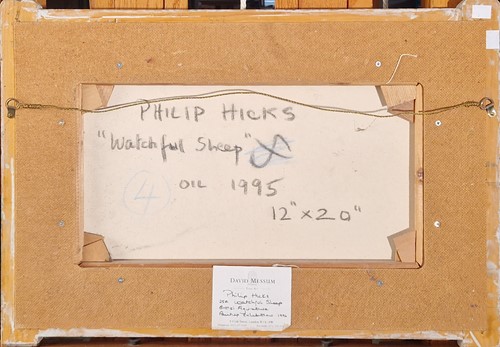 PHILIP HICKS
"Watchful Sheep"
4
OIL 1995
12" x 20"
DAVID MESSUM
Philip Hicks
Watchful Sheep